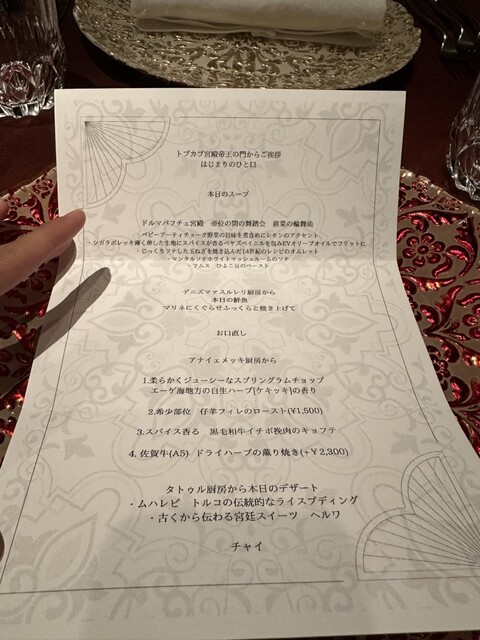 トプカプ宮殿帝王の門からご挨拶
はじまりのひと口
本日のスープ
ドルマバフチェ宮殿 帝位の間の舞踏会 前菜の輪舞曲
・ベビーアーティチョーク野菜の旨味を煮含めにレモンのアクセント
・シガラボレッキ薄く伸した生地にスパイスが香るベヤズペイニルを包みEVオリーブオイルでフリットに
・じっくりソテした玉ねぎを焼き込んだ14世紀のレシピのオムレット
・マンタルソテホワイトマッシュルームのソテ
・フムス ひよこ豆のペースト
アニズマァスルレリ厨房から
本日の鮮魚
マリネにくぐらせふっくらと焼き上げて
お口直し
アナイェメッキ厨房から
1.柔らかくジューシーなスプリングラムチョップ
エーゲ海地方の自生ハーブ[ケキッキ]の香り
2.希少部位 仔羊フィレのロースト(¥1,500)
3.スパイス香る 黒毛和牛イチボ挽肉のキョフテ
4. 佐賀牛(A5) ドライハーブの薫り焼き(+¥2,300)
タトゥル厨房から本日のデザート
・ムハレビ トルコの伝統的なライスプディング
・古くから伝わる宮廷スイーツ ヘルワ
チャイ